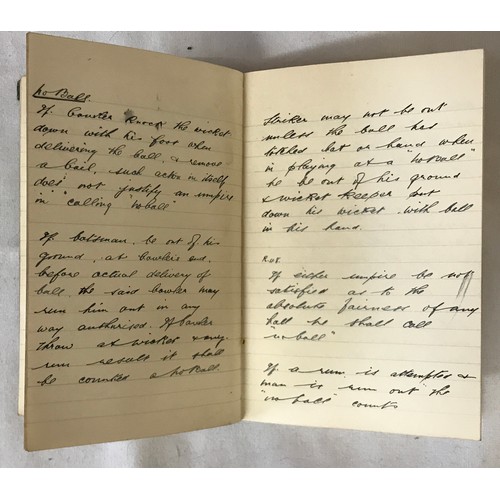 no Ball.
If bowler knock the wicket
down with his foot when
delivering the ball & remove
a bail, such action in itself
does not justify an umpire
in calling "no ball"
If batsman be out of his
ground at bowlers end
before actual delivery of
ball, the said bowler may
run him out in any
way authorised. If bowler
throw at wicket & any
run result it shall
be counted a no Ball.
Striker may not be out
unless the ball has
touched bat or hand when
in playing at a "no ball"
he be out of his ground
& wicket keeper put
down his wicket with ball
in his hand.
If either umpire be not
satisfied as to the
absolute fairness of any
ball he shall call
"no ball"
If a run is attempted &
man is run out the
"no ball" counts